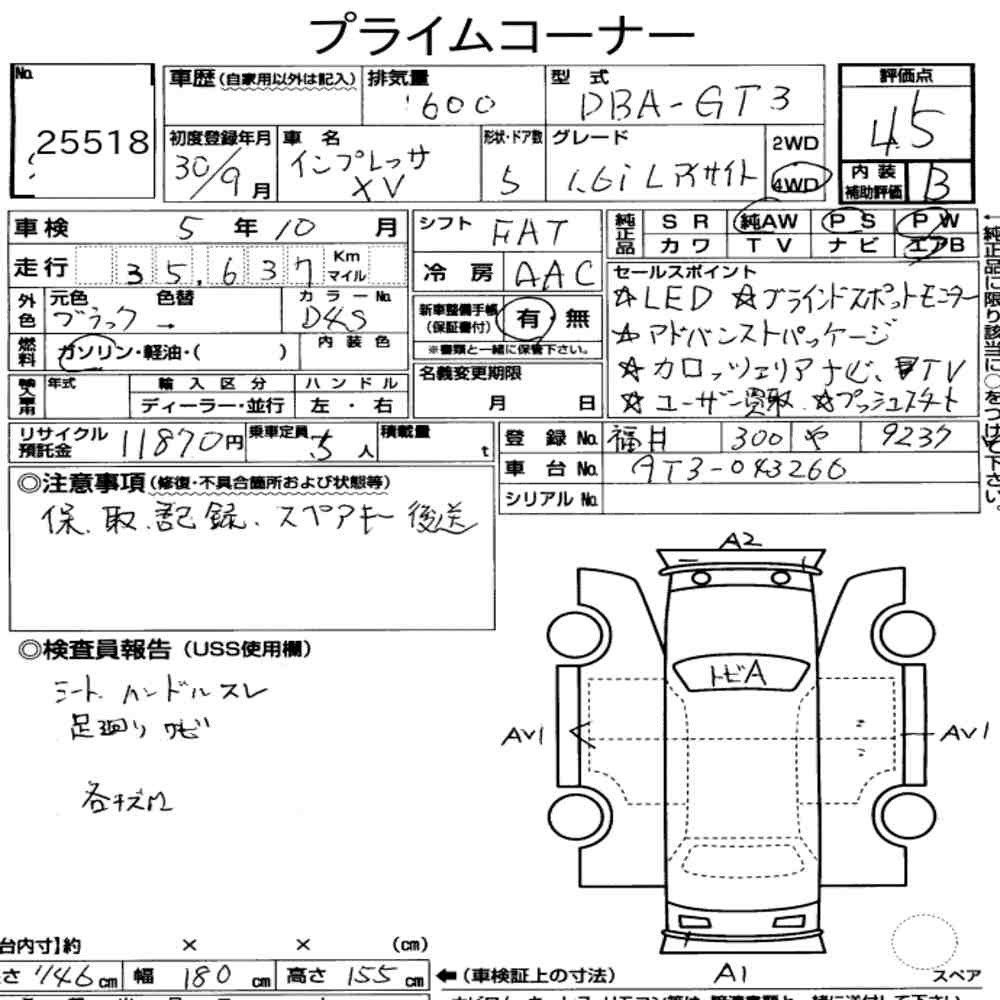 プライムコーナー
No. 25518
車歴(自家用以外は記入)
排気量 1600
型式 DBA-GT3
評価点 4.5
初度登録年月 30/9月
車名 インプレッサ XV
形状・ドア数 5
グレード 1.6i Lアイサイト
2WD
4WD
内装補助評価 B
車検 5年10月
シフト FAT
純正品 SR 純AW PS PW
カワ TV ナビ エアB
走行 35,637 Km マイル
冷房 AAC
セールスポイント
☆LED ☆ブラインドスポットモニター
☆アドバンストパッケージ
☆カロッツェリアナビ、TV
☆ユーザー買取 ☆プッシュスタート
外色 元色 ブラック → 色替
カラーNo. D4S
新車整備手帳(保証書付) 有・無
※書類と一緒に保管下さい。
燃料 ガソリン・軽油・( )
内装色
名義変更期限 月 日
輸入車用 年式
輸入区分 ディーラー・並行
ハンドル 左・右
←純正品に限り該当に○をつけて下さい。
リサイクル預託金 11870円
乗車定員 5人
積載量 t
登録No. 福井 300 や 9237
車台No. GT3-043266
シリアルNo.
◎注意事項(修復・不具合箇所および状態等)
保、取、記録、スペアキー後送
◎検査員報告(USS使用欄)
シート、ハンドルスレ
足廻りサビ
各キズ凹
A2
トビA
AV1
AV1
A1
スペア
台内寸】約 × × (cm)
さ 446cm 幅 180cm 高さ 155cm
←(車検証上の寸法)